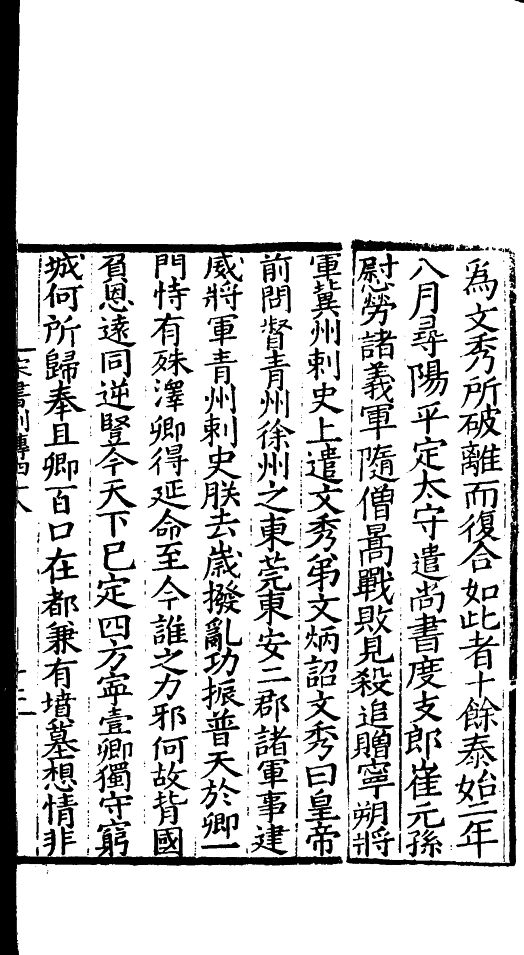 爲文秀所破離而復合如此者十餘泰始二年
八月尋陽平定太守遣尚書度支郎崔元孫
慰勞諸義軍隨僧暠戰敗見殺追贈寧朔將
軍冀州刺史上遣文秀弟文炳詔文秀曰皇帝
前問督青州徐州之東莞東安二郡諸軍事建
威將軍青州刺史朕去歲撥亂功振普天於卿一
門恃有殊澤卿得延命至今誰之力邪何故背國
負恩遠同逆豎今天下已定四方寧壹卿獨守窮
城何所歸奉且卿百口在都兼有墳墓想情非
宋書列傳四十八